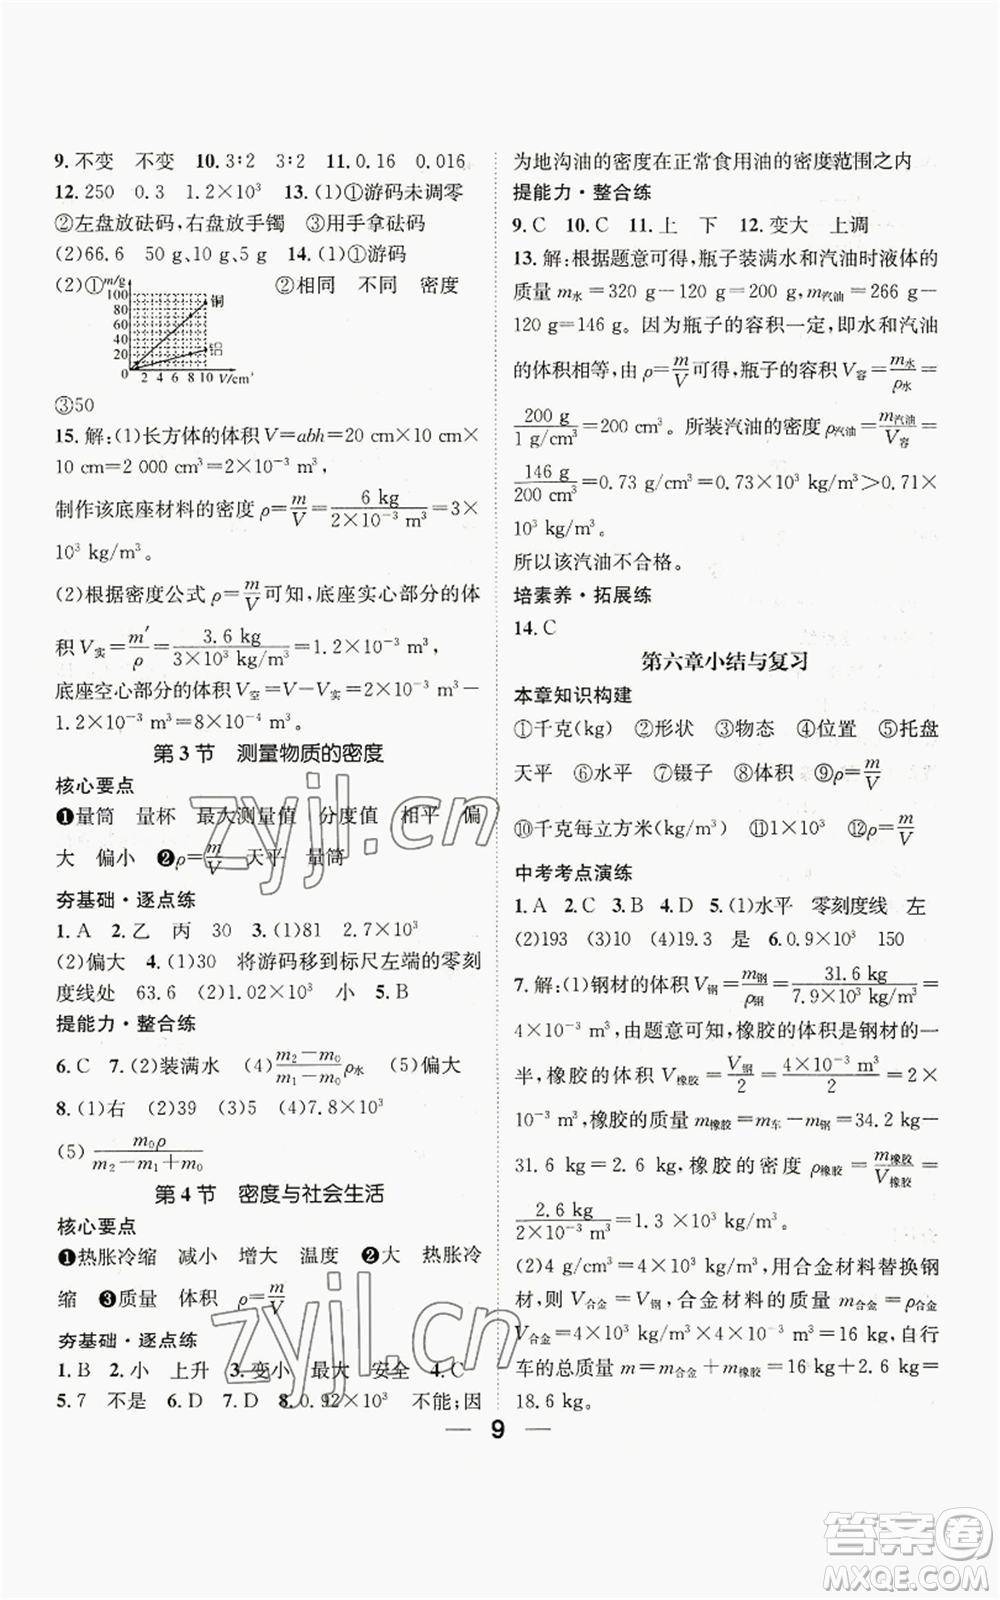 9.不变　不变　10.3∶2　3∶2　11.0.16　0.016
12.250　0.3　1.2×10³　13.(1)①游码未调零
②左盘放砝码,右盘放手镯　③用手拿砝码
(2)66.6　50　17　5.2　14.(1)①游码
(2)①　②相同　不同　密度
m/g
100
80
60
40
20
0
铜
铝
2 4 6 8 10 V/cm³
③50
15.解:(1)长方体的体积V=abh=20 cm×10 cm×
10 cm=2 000 cm³=2×10⁻³ m³,
制作该底座材料的密度ρ=m/V=6 kg/(2×10⁻³ m³)=3×
10³ kg/m³。
(2)根据密度公式ρ=m/V可知,底座实心部分的体
积V实=m′/ρ=3.6 kg/(3×10³ kg/m³)=1.2×10⁻³ m³,
底座空心部分的体积V空=V−V实=2×10⁻³ m³−
1.2×10⁻³ m³=8×10⁻⁴ m³。
第3节　测量物质的密度
核心要点
❶量筒　量杯　最大测量值　分度值　相平　偏
大　偏小　❷ρ=m/V　天平　量筒
夯基础·逐点练
1.A　2.乙　丙　30　3.(1)81　2.7×10³
(2)偏大　4.(1)30　将游码移到标尺左端的零刻
度线处　63.6　(2)1.02×10³　小　5.B
提能力·整合练
6.C　7.(2)装满水　(4)(m₂−m₀)/(m₁−m₀)ρ水　(5)偏大
8.(1)右　(2)39　(3)5　(4)7.8×10³
(5)m₀ρ/(m₂−m₁+m₀)
第4节　密度与社会生活
核心要点
❶热胀冷缩　减小　增大　温度　❷大　热胀冷
缩　❸质量　体积　ρ=m/V
夯基础·逐点练
1.B　2.小　上升　3.变小　最大　安全　4.C
5.7　不是　6.D　7.D　8.0.92×10³　不能;因
为地沟油的密度在正常食用油的密度范围之内
提能力·整合练
9.C　10.C　11.上　下　12.变大　上调
13.解:根据题意可得,瓶子装满水和汽油时液体的
质量m水=320 g−120 g=200 g,m汽油=266 g−
120 g=146 g。因为瓶子的容积一定,即水和汽油
的体积相等,由ρ=m/V可得,瓶子的容积V容=m水/ρ水=
200 g/(1 g/cm³)=200 cm³。所装汽油的密度ρ汽油=m汽油/V容=
146 g/200 cm³=0.73 g/cm³=0.73×10³ kg/m³>0.71×
10³ kg/m³。
所以该汽油不合格。
培素养·拓展练
14.C
第六章小结与复习
本章知识构建
①千克(kg)　②形状　③物态　④位置　⑤托盘
天平　⑥水平　⑦镊子　⑧体积　⑨ρ=m/V
⑩千克每立方米(kg/m³)　⑪1×10³　⑫ρ=m/V
中考考点演练
1.A　2.C　3.B　4.D　5.(1)水平　零刻度线　左
(2)193　(3)10　(4)19.3　是　6.0.9×10³　150
7.解:(1)钢材的体积V钢=m钢/ρ钢=31.6 kg/(7.9×10³ kg/m³)=
4×10⁻³ m³,由题意可知,橡胶的体积是钢材的一
半,橡胶的体积V橡胶=V钢/2=4×10⁻³ m³/2=2×
10⁻³ m³,橡胶的质量m橡胶=m车−m钢=34.2 kg−
31.6 kg=2.6 kg,橡胶的密度ρ橡胶=m橡胶/V橡胶=
2.6 kg/(2×10⁻³ m³)=1.3×10³ kg/m³。
(2)4 g/cm³=4×10³ kg/m³,用合金材料替换钢
材,则V合金=V钢,合金材料的质量m合金=ρ合金
V合金=4×10³ kg/m³×4×10⁻³ m³=16 kg,自行
车的总质量m=m合金+m橡胶=16 kg+2.6 kg=
18.6 kg。
9
zyjl.cn
zyjl.cn
答案圈
MXQE.COM